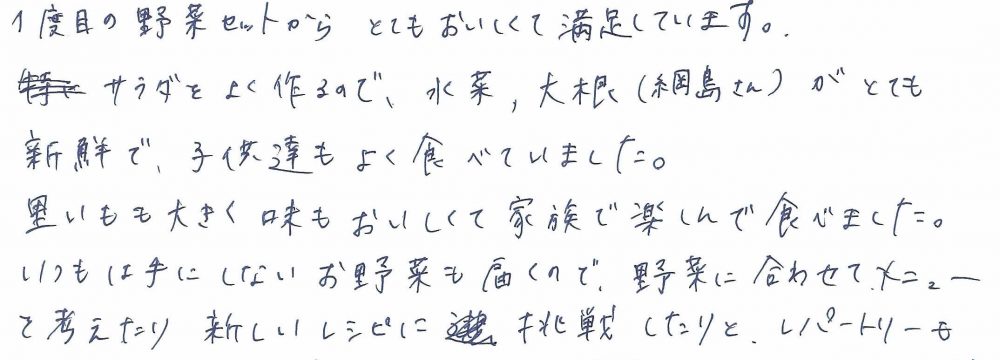 1度目の野菜セットから とてもおいしくて満足しています。
サラダをよく作るので、水菜,大根(綱島さん)がとても
新鮮で、子供達もよく食べていました。
里いもも大きく味もおいしくて家族で楽しんで食べました。
いつもは手にしないお野菜も届くので、野菜に合わせて、メニュー
を考えたり 新しいレシピに 挑戦したりと、レパートリーも